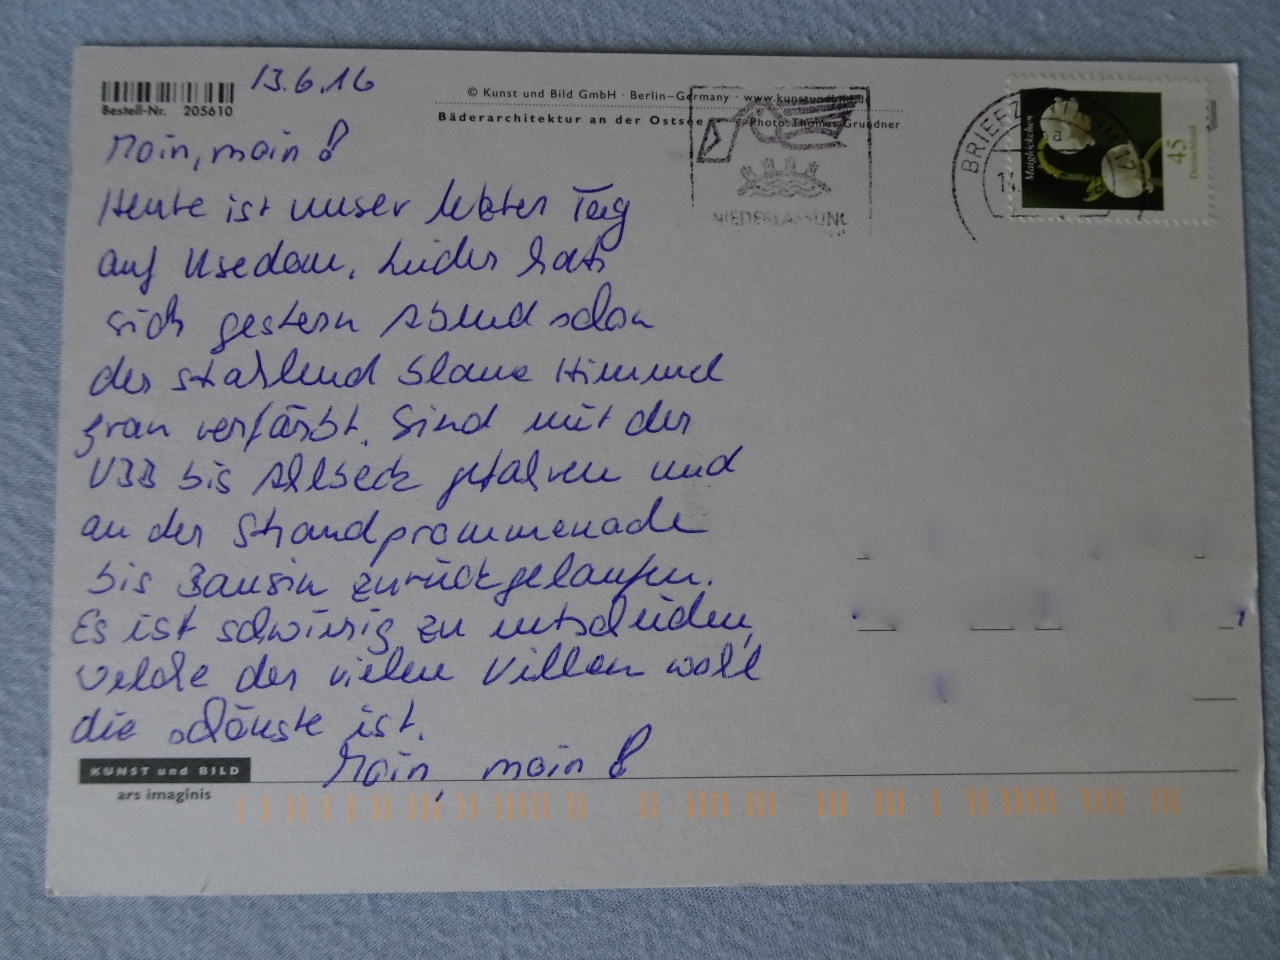 13.6.16
Bestell-Nr. 205610
© Kunst und Bild GmbH · Berlin–Germany · www.kunstundbild.de
Bäderarchitektur an der Ostsee Photo: Thomas Grundner
NIEDERLASSUNG
BRIEFZ
Maiglöckchen
45
Deutschland
Moin, moin!
Heute ist unser letzter Tag
auf Usedom. Leider hat
sich gestern Abend schon
der strahlend blaue Himmel
grau verfärbt. Sind mit der
UBB bis Ahlbeck gefahren und
an der Strandprommenade
bis Bansin zurückgelaufen.
Es ist schwierig zu entscheiden,
welche der vielen Villen wohl
die schönste ist.
Moin, moin!
KUNST und BILD
ars imaginis